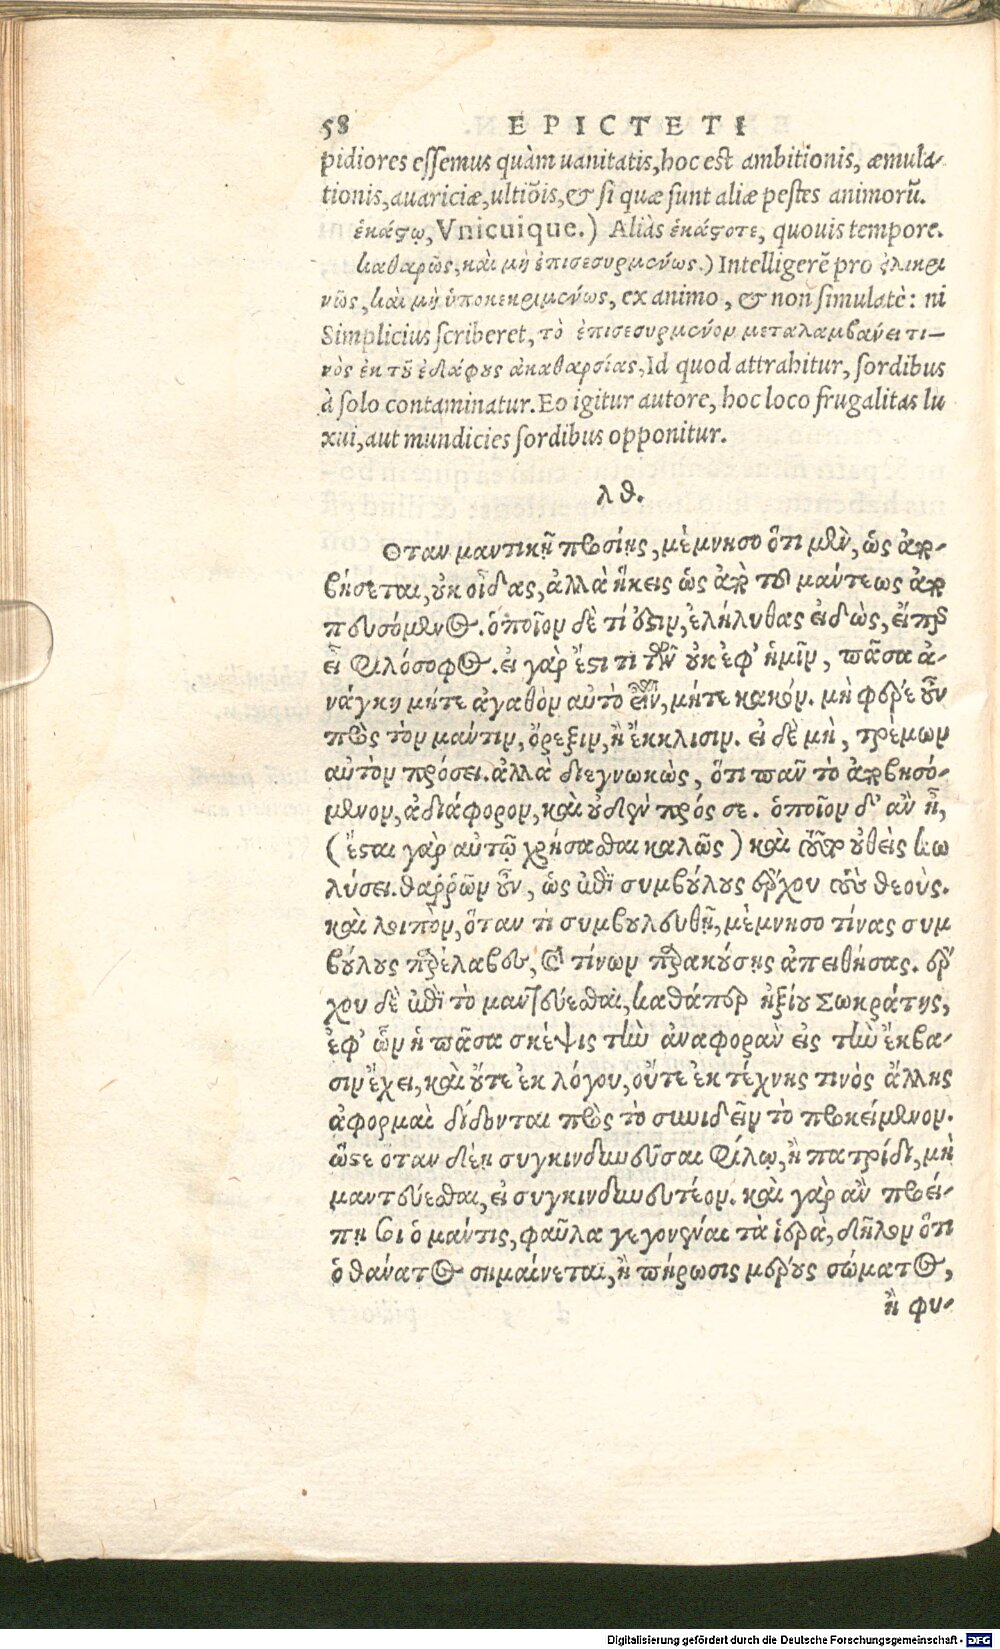 58 EPICTETI
pidiores essemus quàm uanitatis, hoc est ambitionis, æmula-
tionis, auariciæ, ultiõis, & si quæ sunt aliæ pestes animorũ.
ἑκάϛῳ, Vnicuique.) Aliàs ἑκάϛοτε, quouis tempore.
καθαρῶς, καὶ μὴ ἐπισεσυρμένως.) Intelligerẽ pro εἰλικρι
νῶς, καὶ μὴ ὑποκεκριμένως, ex animo, & non simulatè: ni
Simplicius scriberet, τὸ ἐπισεσυρμένον μεταλαμβάνει τι-
νὸς ἐκ τοῦ ἐδάφους ἀκαθαρσίας, Id quod attrahitur, sordibus
à solo contaminatur. Eo igitur autore, hoc loco frugalitas lu
xui, aut mundicies sordibus opponitur.
λθ.
Οταν μαντικῇ προσίῃς, μέμνησο ὅτι μὲν, ὡς ἀπο-
βήσεται, οὐκ οἶδας, ἀλλὰ ἥκεις ὡς ἀπὸ τοῦ μάντεως αὐτὸ
πευσόμενος. ὁποῖον δὲ τί ὅϛιν, ἐλήλυθας εἰδὼς, εἴπερ
εἶ φιλόσοφος. εἰ γὰρ ἔϛι τι τῶν οὐκ ἐφ' ἡμῖν, πᾶσα ἀ-
νάγκη μήτε ἀγαθὸν αὐτὸ εἶναι, μήτε κακόν. μὴ φέρε οὖν
πρὸς τὸν μάντιν, ὄρεξιν, ἢ ἔκκλισιν. εἰ δὲ μὴ, τρέμων
αὐτὸν πρόσει. ἀλλὰ διεγνωκὼς, ὅτι πᾶν τὸ ἀποβησό-
μενον, ἀδιάφορον, καὶ οὐδὲν πρός σε. ὁποῖον δ' ἂν ᾖ,
(ἔϛαι γὰρ αὐτῷ χρήσασθαι καλῶς) καὶ τοῦτο οὐθεὶς κω
λύσει. θαῤῥῶν οὖν, ὡς ἐπὶ συμβούλους ἔρχου τοὺς θεούς.
καὶ λοιπὸν, ὅταν τι συμβουλευθῇ, μέμνησο τίνας συμ
βούλους παρέλαβες, καὶ τίνων παρακούσῃς ἀπειθήσας. ἔρ
χου δὲ ἐπὶ τὸ μαντεύεσθαι, καθάπερ ἠξίου Σωκράτης,
ἐφ' ὧν ἡ πᾶσα σκέψις τὴν ἀναφορὰν εἰς τὴν ἔκβα-
σιν ἔχει, καὶ οὔτε ἐκ λόγου, οὔτε ἐκ τέχνης τινὸς ἄλλης
ἀφορμαὶ δίδονται πρὸς τὸ συνιδεῖν τὸ προκείμενον.
ὥϛε ὅταν δέῃ συγκινδυνεῦσαι φίλῳ, ἢ πατρίδι, μὴ
μαντεύεσθαι, εἰ συγκινδυνευτέον. καὶ γὰρ ἂν προεί-
πῃ σοι ὁ μάντις, φαῦλα γεγονέναι τὰ ἱερὰ, δῆλον ὅτι
ὁ θάνατος σημαίνεται, ἢ πήρωσις μέρους σώματος,
ἢ φυ-
Digitalisierung gefördert durch die Deutsche Forschungsgemeinschaft - DFG